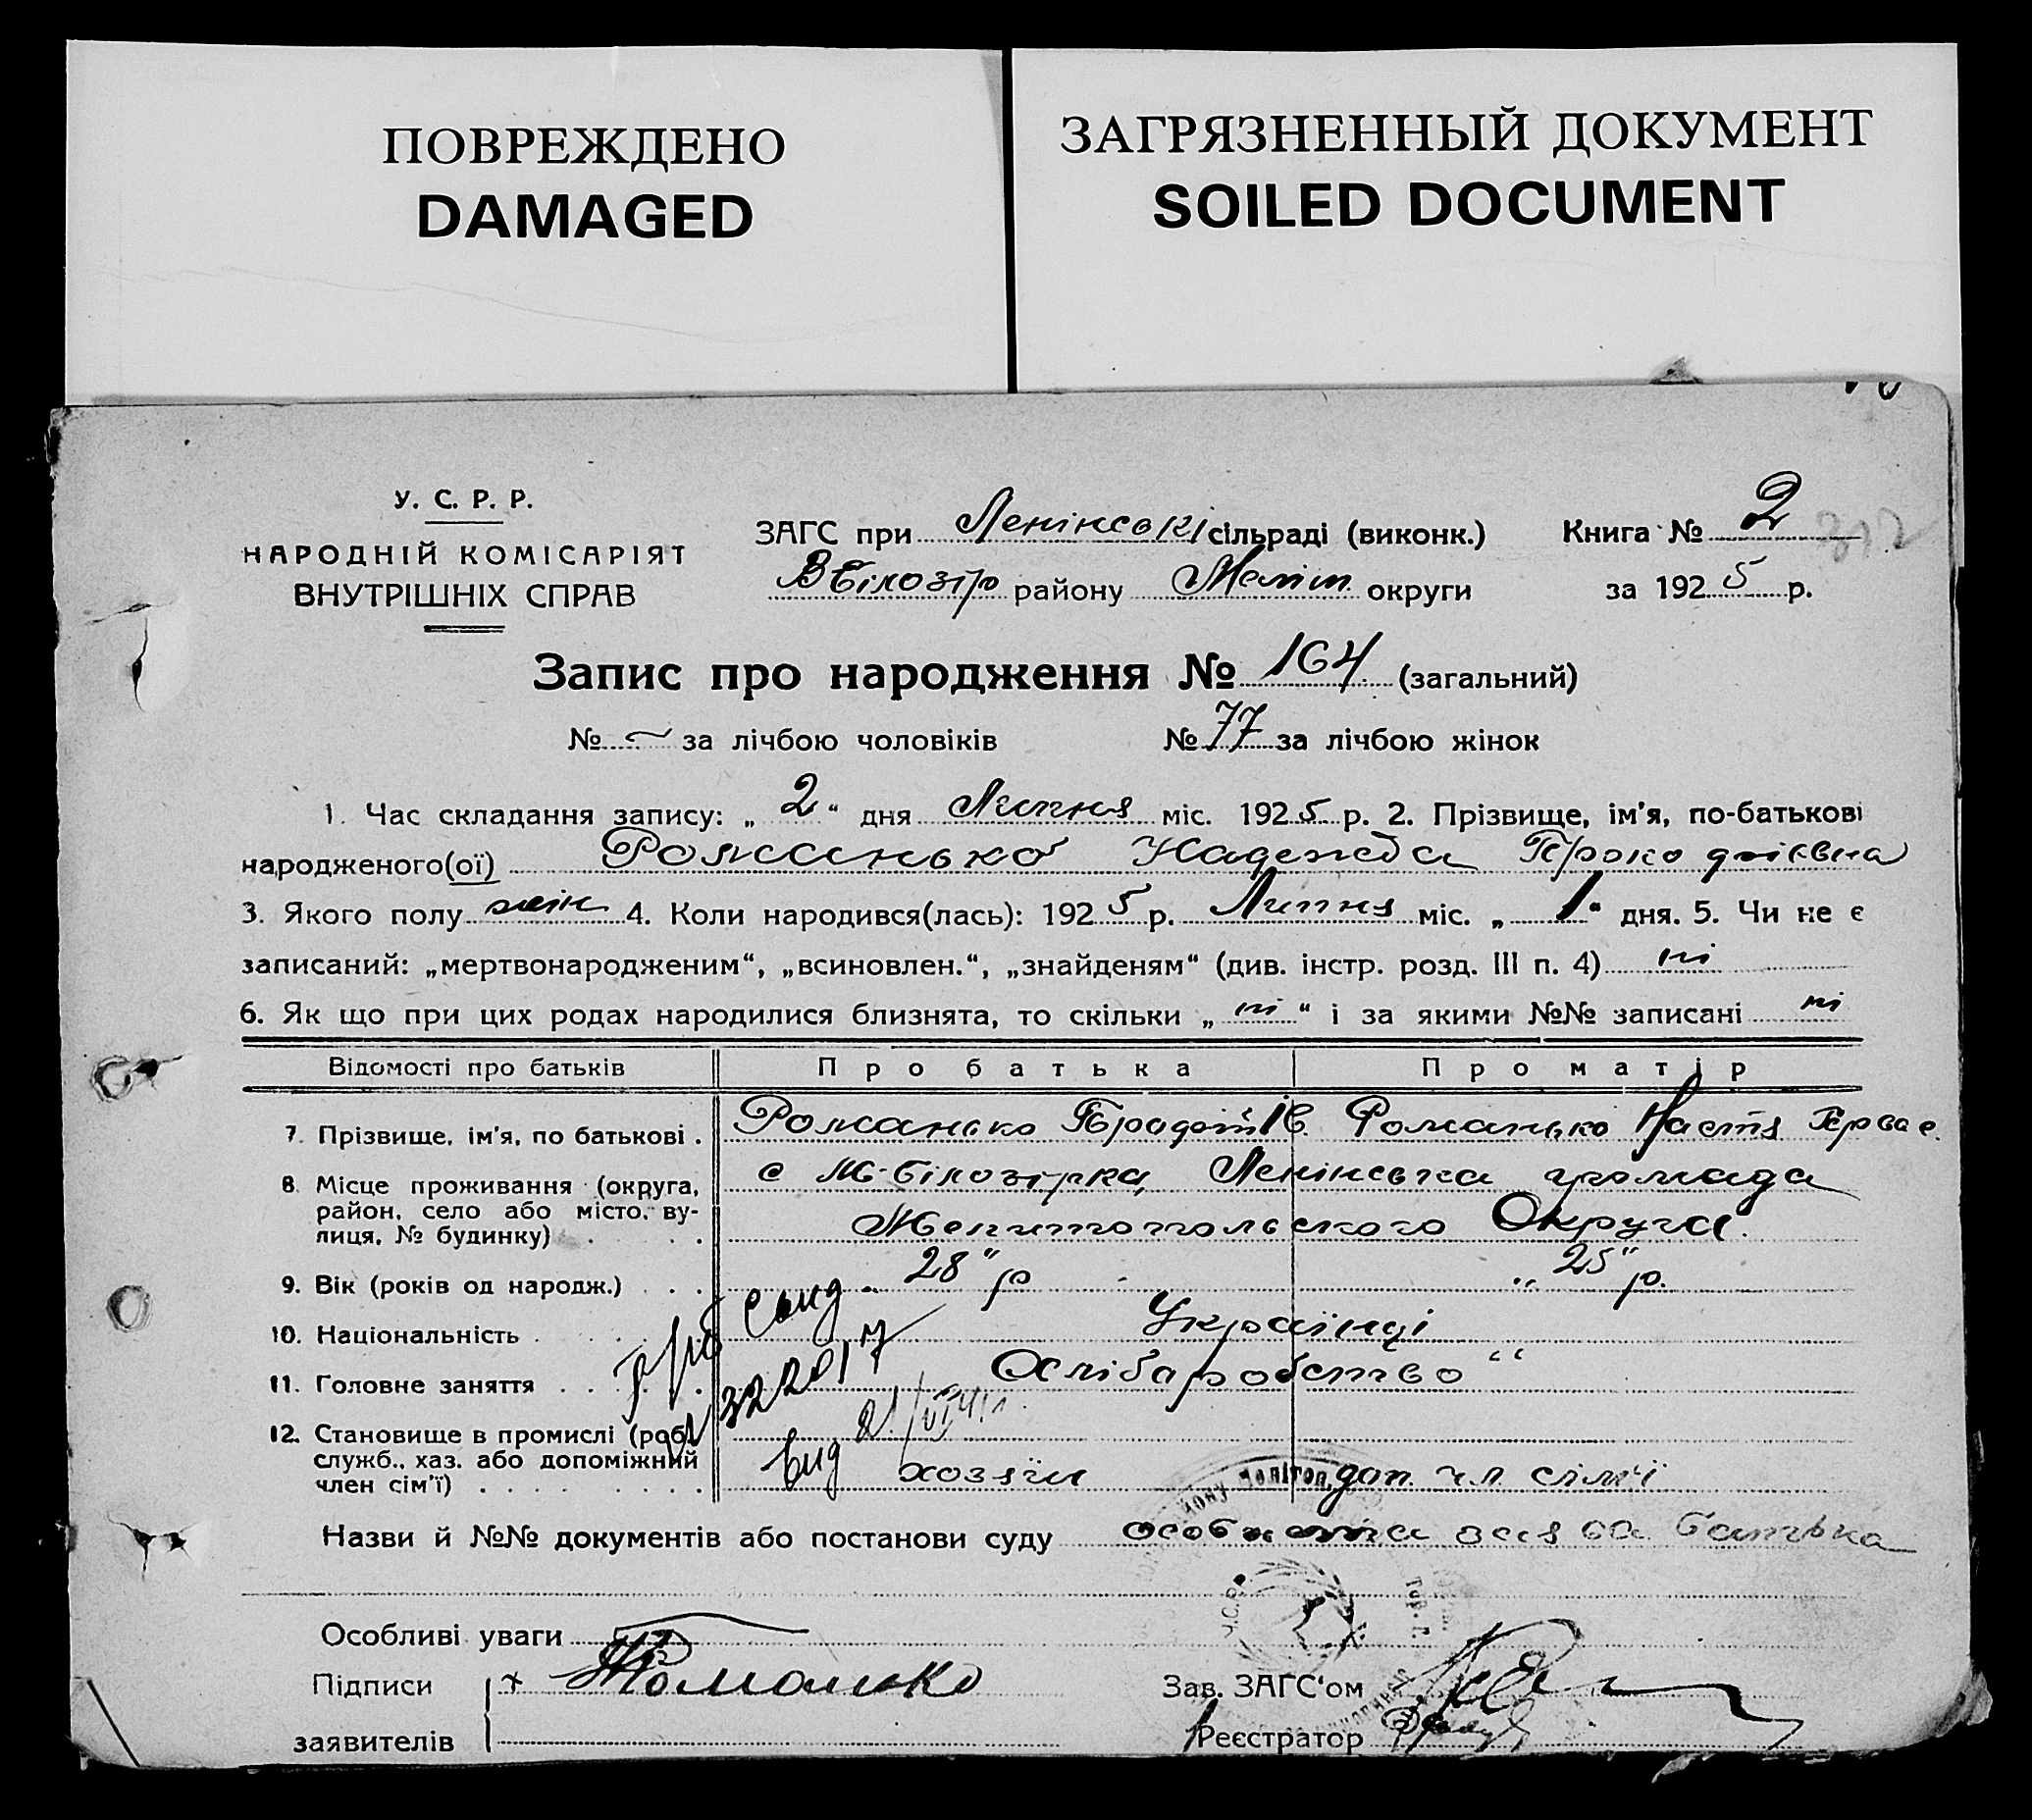 ПОВРЕЖДЕНО
DAMAGED
ЗАГРЯЗНЕННЫЙ ДОКУМЕНТ
SOILED DOCUMENT
У. С. Р. Р.
НАРОДНІЙ КОМІСАРІЯТ
ВНУТРІШНІХ СПРАВ
ЗАГС при Ленінській сільраді (виконк.) Книга № 2
ВБілозір району Меліт. округи за 1925 р.
Запис про народження № 164 (загальний)
№ — за лічбою чоловіків № 77 за лічбою жінок
1. Час складання запису: „2“ дня Липня міс. 1925 р. 2. Прізвище, ім'я, по-батькові
народженого(ої) Романько Надежда
3. Якого полу жін 4. Коли народився(лась): 1925 р. Липня міс. „1“ дня. 5. Чи не є
записаний: „мертвонародженим“, „всиновлен.“, „знайденям“ (див. інстр. розд. III п. 4) ні
6. Як що при цих родах народилися близнята, то скільки „ні“ і за якими №№ записані ні
Відомості про батьків Про батька Про матір
7. Прізвище, ім'я, по батькові . Романько Романько Настя
8. Місце проживання (округа, с М-Білозірка Ленінська громада
район, село або місто, ву-
лиця, № будинку) . . . Мелитопольского Округа.
9. Вік (років од народж.) . . . 28" р „ 25" р.
10. Національність . Українці
11. Головне заняття . . . . Хлібаробство "
12. Становище в промислі (роб.,
служб., хаз. або допоміжний
член сім'ї) . . . . . . . . хозяїн доп. чл. сімї
322017
вид
Назви й №№ документів або постанови суду особиста заява батька
Особливі уваги
Підписи
заявителів
Романько
Зав. ЗАГС'ом
Реєстратор